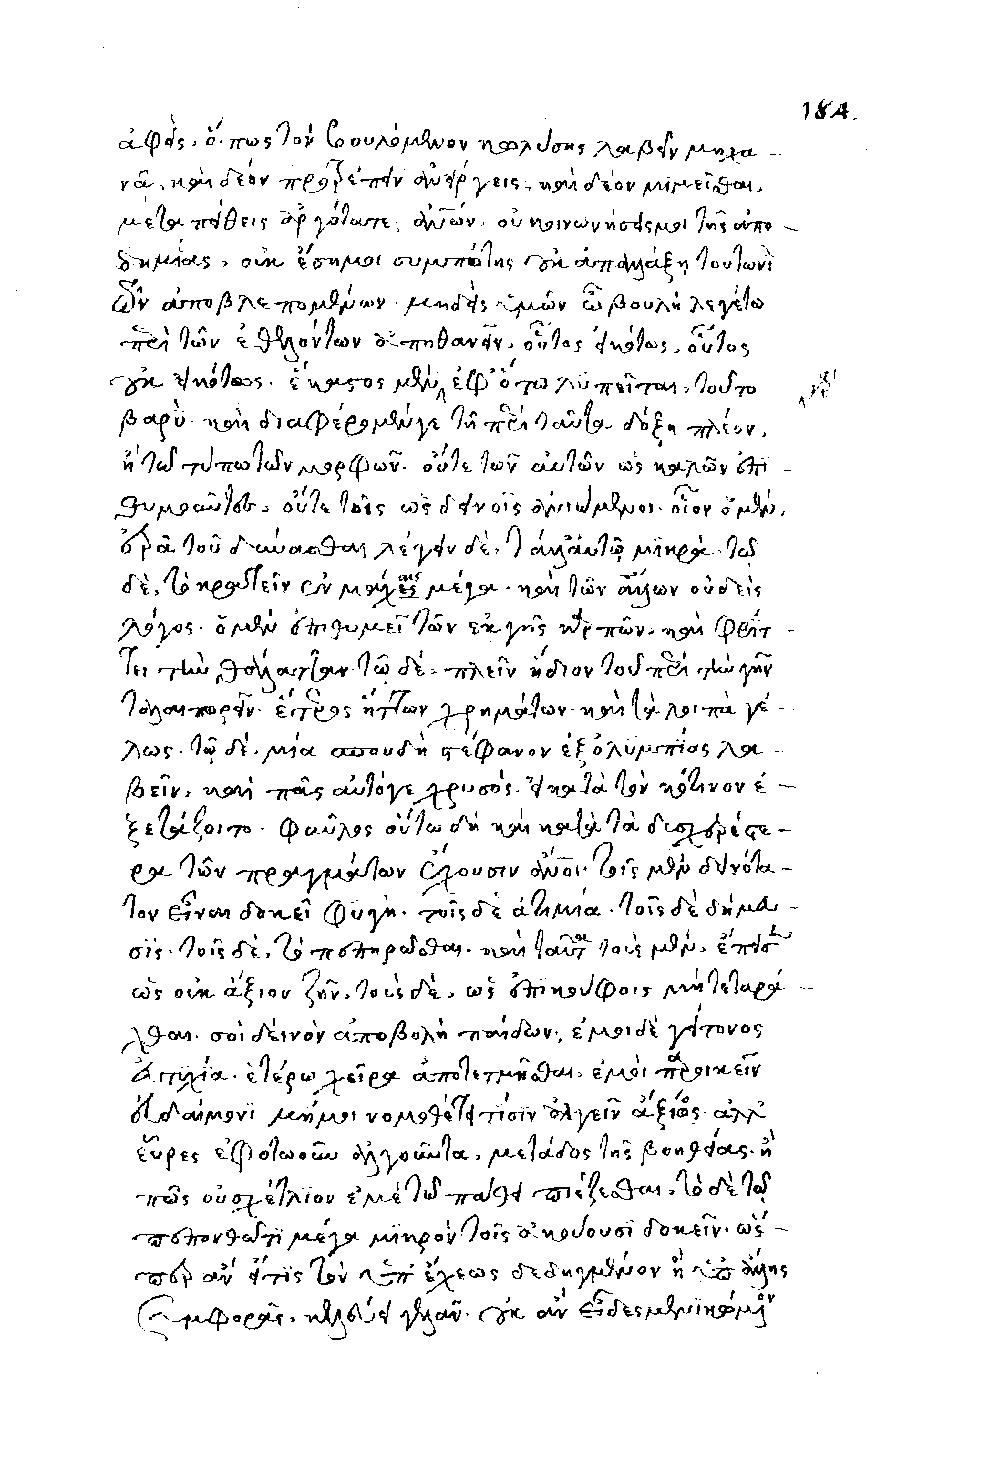 184.
ἀφεὶς, ὅπως τὸν βουλόμενον κωλύσῃς λαβεῖν μηχα-
νᾶ, καὶ δέον προτρέπειν ἀνείργεις, καὶ δέον μιμεῖσθαι,
μετα πείθεις
δημίας, οὐκ ἔσῃ μοι συμπότης οὐκ ἀπαλλάξῃ τουτωνὶ
τῶν ἀποβλεπομένων. μηδεὶς ὑμῶν ὦ βουλὴ λεγέτω
περὶ τῶν ἐθελόντων ἀποθανεῖν. οὗτος εἰκότως, οὗτος
οὐκ εἰκότως. ἕκαστος μὲν ἐφ' ὅτῳ λυπεῖται, τοῦτο
γὰρ
βαρύ. καὶ διαφέρομεν γε τῇ περὶ ταῦτα δόξῃ πλέον,
ἢ τῷ τύπῳ τῶν μορφῶν. οὔτε τῶν αὐτῶν ὡς καλῶν ἐπι-
θυμοῦντες, οὔτε τοῖς ὡς δεινοῖς ἀνιώμενοι. οἷον ὁ μὲν,
ἐρᾷ τοῦ δύνασθαι λέγειν δὲ, τἄλλα αὐτῷ μικρά. τῷ
δὲ, τὸ κρατεῖν ἐν μάχαις μέγα. καὶ τῶν ἄλλων οὐδεὶς
λόγος. ὁ μὲν ἐπιθυμεῖ τῶν ἐκ γῆς καρπῶν. καὶ φρίτ-
τει τὴν θάλατταν τῷ δὲ, πλεῖν ἥδιον τοῦ περὶ τὴν γῆν
ταλαιπωρεῖν. ἕτερος ἥττων χρημάτων. καὶ τὰ λοιπὰ γέ-
λως. τῷ δὲ, μία σπουδὴ στέφανον ἐξ ὀλυμπίας λα-
βεῖν, καὶ πᾶς αὐτόγε χρυσὸς. εἰ κατὰ τὸν κότινον ἐ-
ξετάζοιτο. φαῦλος οὕτω δὴ καὶ κατὰ τὰ δυσχερέστε-
ρα τῶν πραγμάτων ἔχουσιν ἄνθρωποι. τοῖς μὲν δεινότα-
τον εἶναι δοκεῖ φυγὴ. τοῖς δὲ ἀτιμία. τοῖς δὲ δήμευ-
σις. τοῖς δὲ, τὸ πεπηρῶσθαι. καὶ ταῦτα τοὺς μὲν, ἔπεισεν
ὡς οὐκ ἄξιον ζῆν, τοὺς δὲ, ὡς ἐπὶ κούφοις μὴ τεταρά-
χθαι. σοὶ δεινὸν ἀποβολὴ παίδων, ἐμοὶ δὲ γείτονος
εὐτυχία. ἑτέρῳ χεῖρα ἀποτετμῆσθαι, ἐμοὶ παροικεῖν
εὐδαίμονι μή μοι νομοθέτει τίσιν ἀλγεῖν ἄξιον. ἀλλ'
εὗρες ἐφ' ὅτῳ οὖν ἀλγοῦντα, μετάδος τῆς βοηθείας. ἢ
πῶς οὐ σχέτλιον ἐμὲ τῷ πάθει πιέζεσθαι, τὸ δὲ τῷ
πεπονθότι μέγα μικρὸν τοῖς ἀκούουσι δοκεῖν. ὥσ-
περ ἂν εἴ τις τὸν ὑπ' ἔχεως δεδηγμένον ἢ ὑπ' ἄλλης
συμφορᾶς, κελεύει γελᾶν. οὐκ ἂν εἶδες μὲν